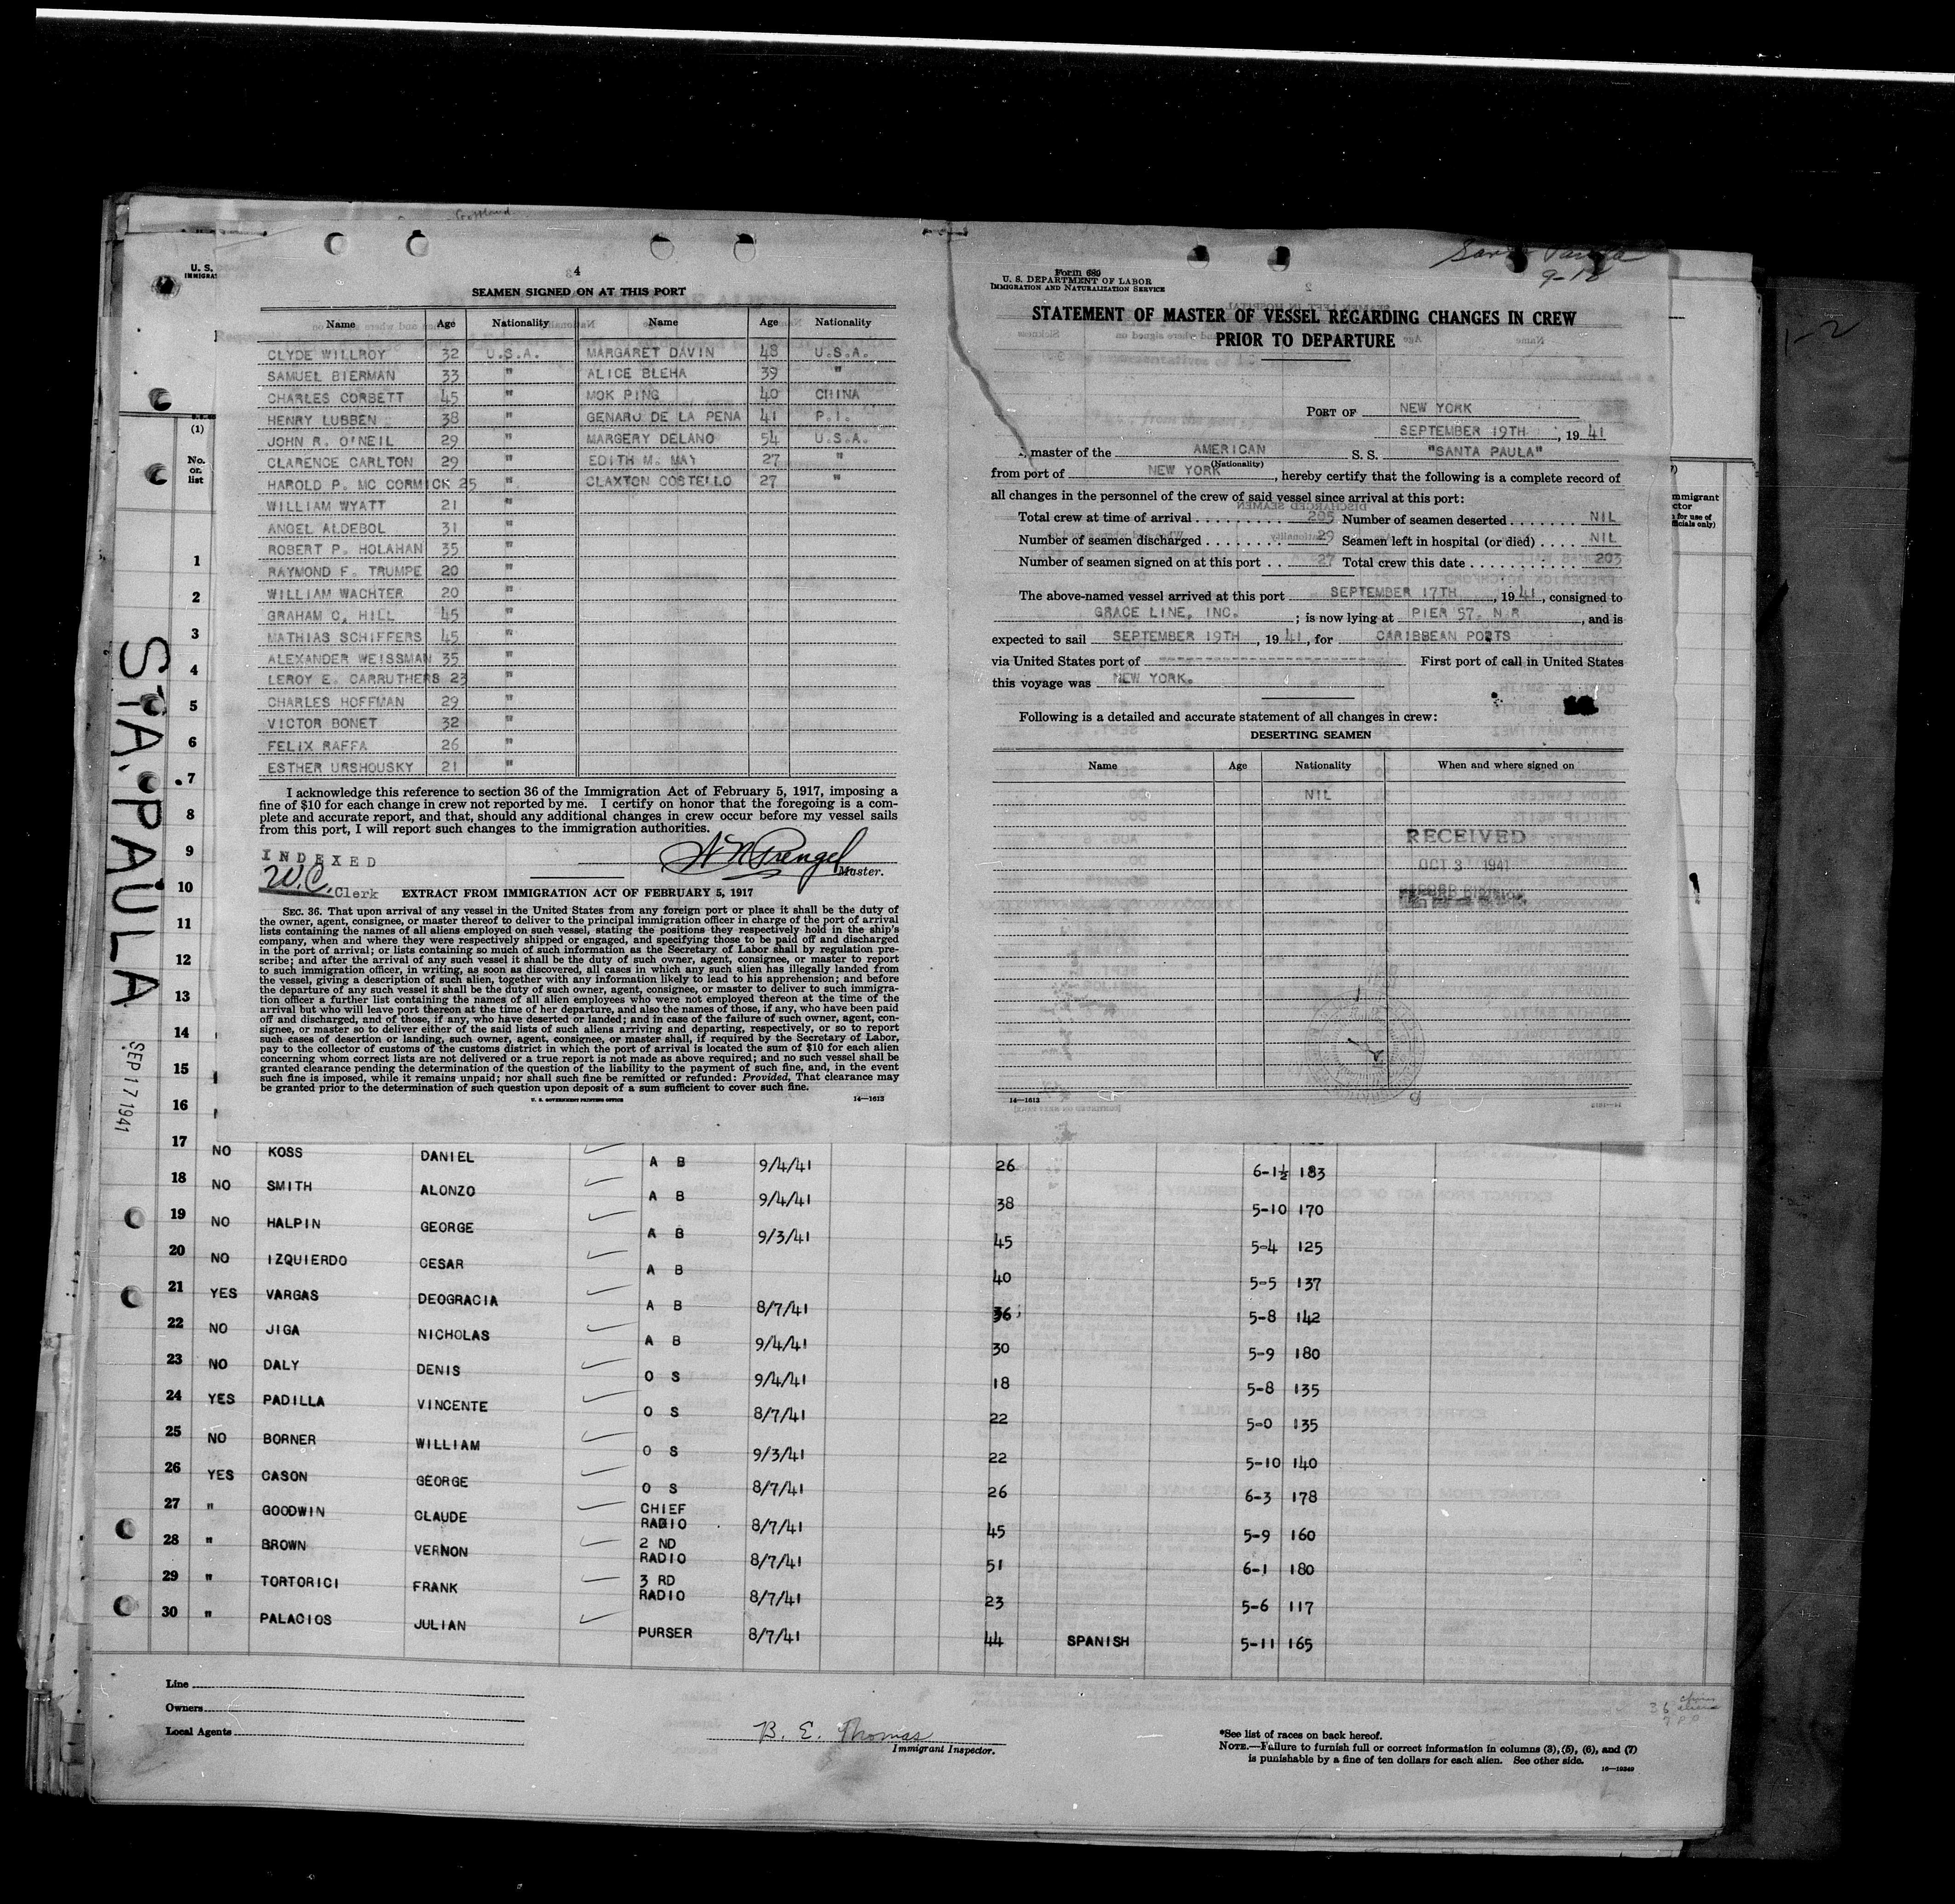 STA. PAULA
SEP 17 1941
U. S.
IMMIGRA
(1)
No.
on
list
4
SEAMEN SIGNED ON AT THIS PORT
Name Age Nationality Name Age Nationality
CLYDE WILLROY 32 U.S.A. MARGARET DAVIN 48 U.S.A.
SAMUEL BIERMAN 33 " ALICE BLEHA 39 "
CHARLES CORBETT 45 " MOK PING 40 CHINA
HENRY LUBBEN 38 " GENARO DE LA PENA 41 P.I.
JOHN R. O'NEIL 29 " MARGERY DELANO 54 U.S.A.
CLARENCE CARLTON 29 " EDITH M. MAY 27 "
HAROLD P. MC CORMICK 25 " CLAXTON COSTELLO 27 "
WILLIAM WYATT 21 "
ANGEL ALDEBOL 31 "
ROBERT P. HOLAHAN 35 "
RAYMOND F. TRUMPE 20 "
WILLIAM WACHTER 20 "
GRAHAM C. HILL 45 "
MATHIAS SCHIFFERS 45 "
ALEXANDER WEISSMAN 35 "
LEROY E. CARRUTHERS 23 "
CHARLES HOFFMAN 29 "
VICTOR BONET 32 "
FELIX RAFFA 26 "
ESTHER URSHOUSKY 21 "
I acknowledge this reference to section 36 of the Immigration Act of February 5, 1917, imposing a
fine of $10 for each change in crew not reported by me. I certify on honor that the foregoing is a com-
plete and accurate report, and that, should any additional changes in crew occur before my vessel sails
from this port, I will report such changes to the immigration authorities.
INDEXED
W.C. Clerk
Master.
EXTRACT FROM IMMIGRATION ACT OF FEBRUARY 5, 1917
SEC. 36. That upon arrival of any vessel in the United States from any foreign port or place it shall be the duty of
the owner, agent, consignee, or master thereof to deliver to the principal immigration officer in charge of the port of arrival
lists containing the names of all aliens employed on such vessel, stating the positions they respectively hold in the ship's
company, when and where they were respectively shipped or engaged, and specifying those to be paid off and discharged
in the port of arrival; or lists containing so much of such information as the Secretary of Labor shall by regulation pre-
scribe; and after the arrival of any such vessel it shall be the duty of such owner, agent, consignee, or master to report
to such immigration officer, in writing, as soon as discovered, all cases in which any such alien has illegally landed from
the vessel, giving a description of such alien, together with any information likely to lead to his apprehension; and before
the departure of any such vessel it shall be the duty of such owner, agent, consignee, or master to deliver to such immigra-
tion officer a further list containing the names of all alien employees who were not employed thereon at the time of the
arrival but who will leave port thereon at the time of her departure, and also the names of those, if any, who have been paid
off and discharged, and of those, if any, who have deserted or landed; and in case of the failure of such owner, agent, con-
signee, or master so to deliver either of the said lists of such aliens arriving and departing, respectively, or so to report
such cases of desertion or landing, such owner, agent, consignee, or master shall, if required by the Secretary of Labor,
pay to the collector of customs of the customs district in which the port of arrival is located the sum of $10 for each alien
concerning whom correct lists are not delivered or a true report is not made as above required; and no such vessel shall be
granted clearance pending the determination of the question of the liability to the payment of such fine, and, in the event
such fine is imposed, while it remains unpaid; nor shall such fine be remitted or refunded: Provided, That clearance may
be granted prior to the determination of such question upon deposit of a sum sufficient to cover such fine.
U. S. GOVERNMENT PRINTING OFFICE 14—1613
Santa Paula
Form 689
U. S. DEPARTMENT OF LABOR
IMMIGRATION AND NATURALIZATION SERVICE
STATEMENT OF MASTER OF VESSEL REGARDING CHANGES IN CREW
PRIOR TO DEPARTURE
PORT OF NEW YORK
SEPTEMBER 19TH, 19 41
master of the AMERICAN S. S. "SANTA PAULA"
(Nationality)
from port of NEW YORK, hereby certify that the following is a complete record of
all changes in the personnel of the crew of said vessel since arrival at this port:
Total crew at time of arrival 205 Number of seamen deserted NIL
Number of seamen discharged 29 Seamen left in hospital (or died) NIL
Number of seamen signed on at this port 27 Total crew this date 203
The above-named vessel arrived at this port SEPTEMBER 17TH, 19 41, consigned to
GRACE LINE, INC. ; is now lying at PIER 57. N.R, and is
expected to sail SEPTEMBER 19TH, 19 41, for CARIBBEAN PORTS
via United States port of First port of call in United States
this voyage was NEW YORK.
Following is a detailed and accurate statement of all changes in crew:
DESERTING SEAMEN
Name Age Nationality When and where signed on
NIL
RECEIVED
OCT 3 1941
14—1613
mmigrant
ctor
for use of
ficials only)
1
2
3
4
5
6
7
8
9
10
11
12
13
14
15
16
17 NO KOSS DANIEL A B 9/4/41 26 6-1½ 183
18 NO SMITH ALONZO A B 9/4/41 38 5-10 170
19 NO HALPIN GEORGE A B 9/3/41 45 5-4 125
20 NO IZQUIERDO CESAR A B 40 5-5 137
21 YES VARGAS DEOGRACIA A B 8/7/41 36 5-8 142
22 NO JIGA NICHOLAS A B 9/4/41 30 5-9 180
23 NO DALY DENIS O S 9/4/41 18 5-8 135
24 YES PADILLA VINCENTE O S 8/7/41 22 5-0 135
25 NO BORNER WILLIAM O S 9/3/41 22 5-10 140
26 YES CASON GEORGE O S 8/7/41 26 6-3 178
27 " GOODWIN CLAUDE CHIEF RADIO 8/7/41 45 5-9 160
28 " BROWN VERNON 2 ND RADIO 8/7/41 51 6-1 180
29 " TORTORICI FRANK 3 RD RADIO 8/7/41 23 5-6 117
30 " PALACIOS JULIAN PURSER 8/7/41 44 SPANISH 5-11 165
Line
Owners
Local Agents
B. E. Thomas
Immigrant Inspector.
*See list of races on back hereof.
NOTE.—Failure to furnish full or correct information in columns (3), (5), (6), and (7)
is punishable by a fine of ten dollars for each alien. See other side.
16—19349